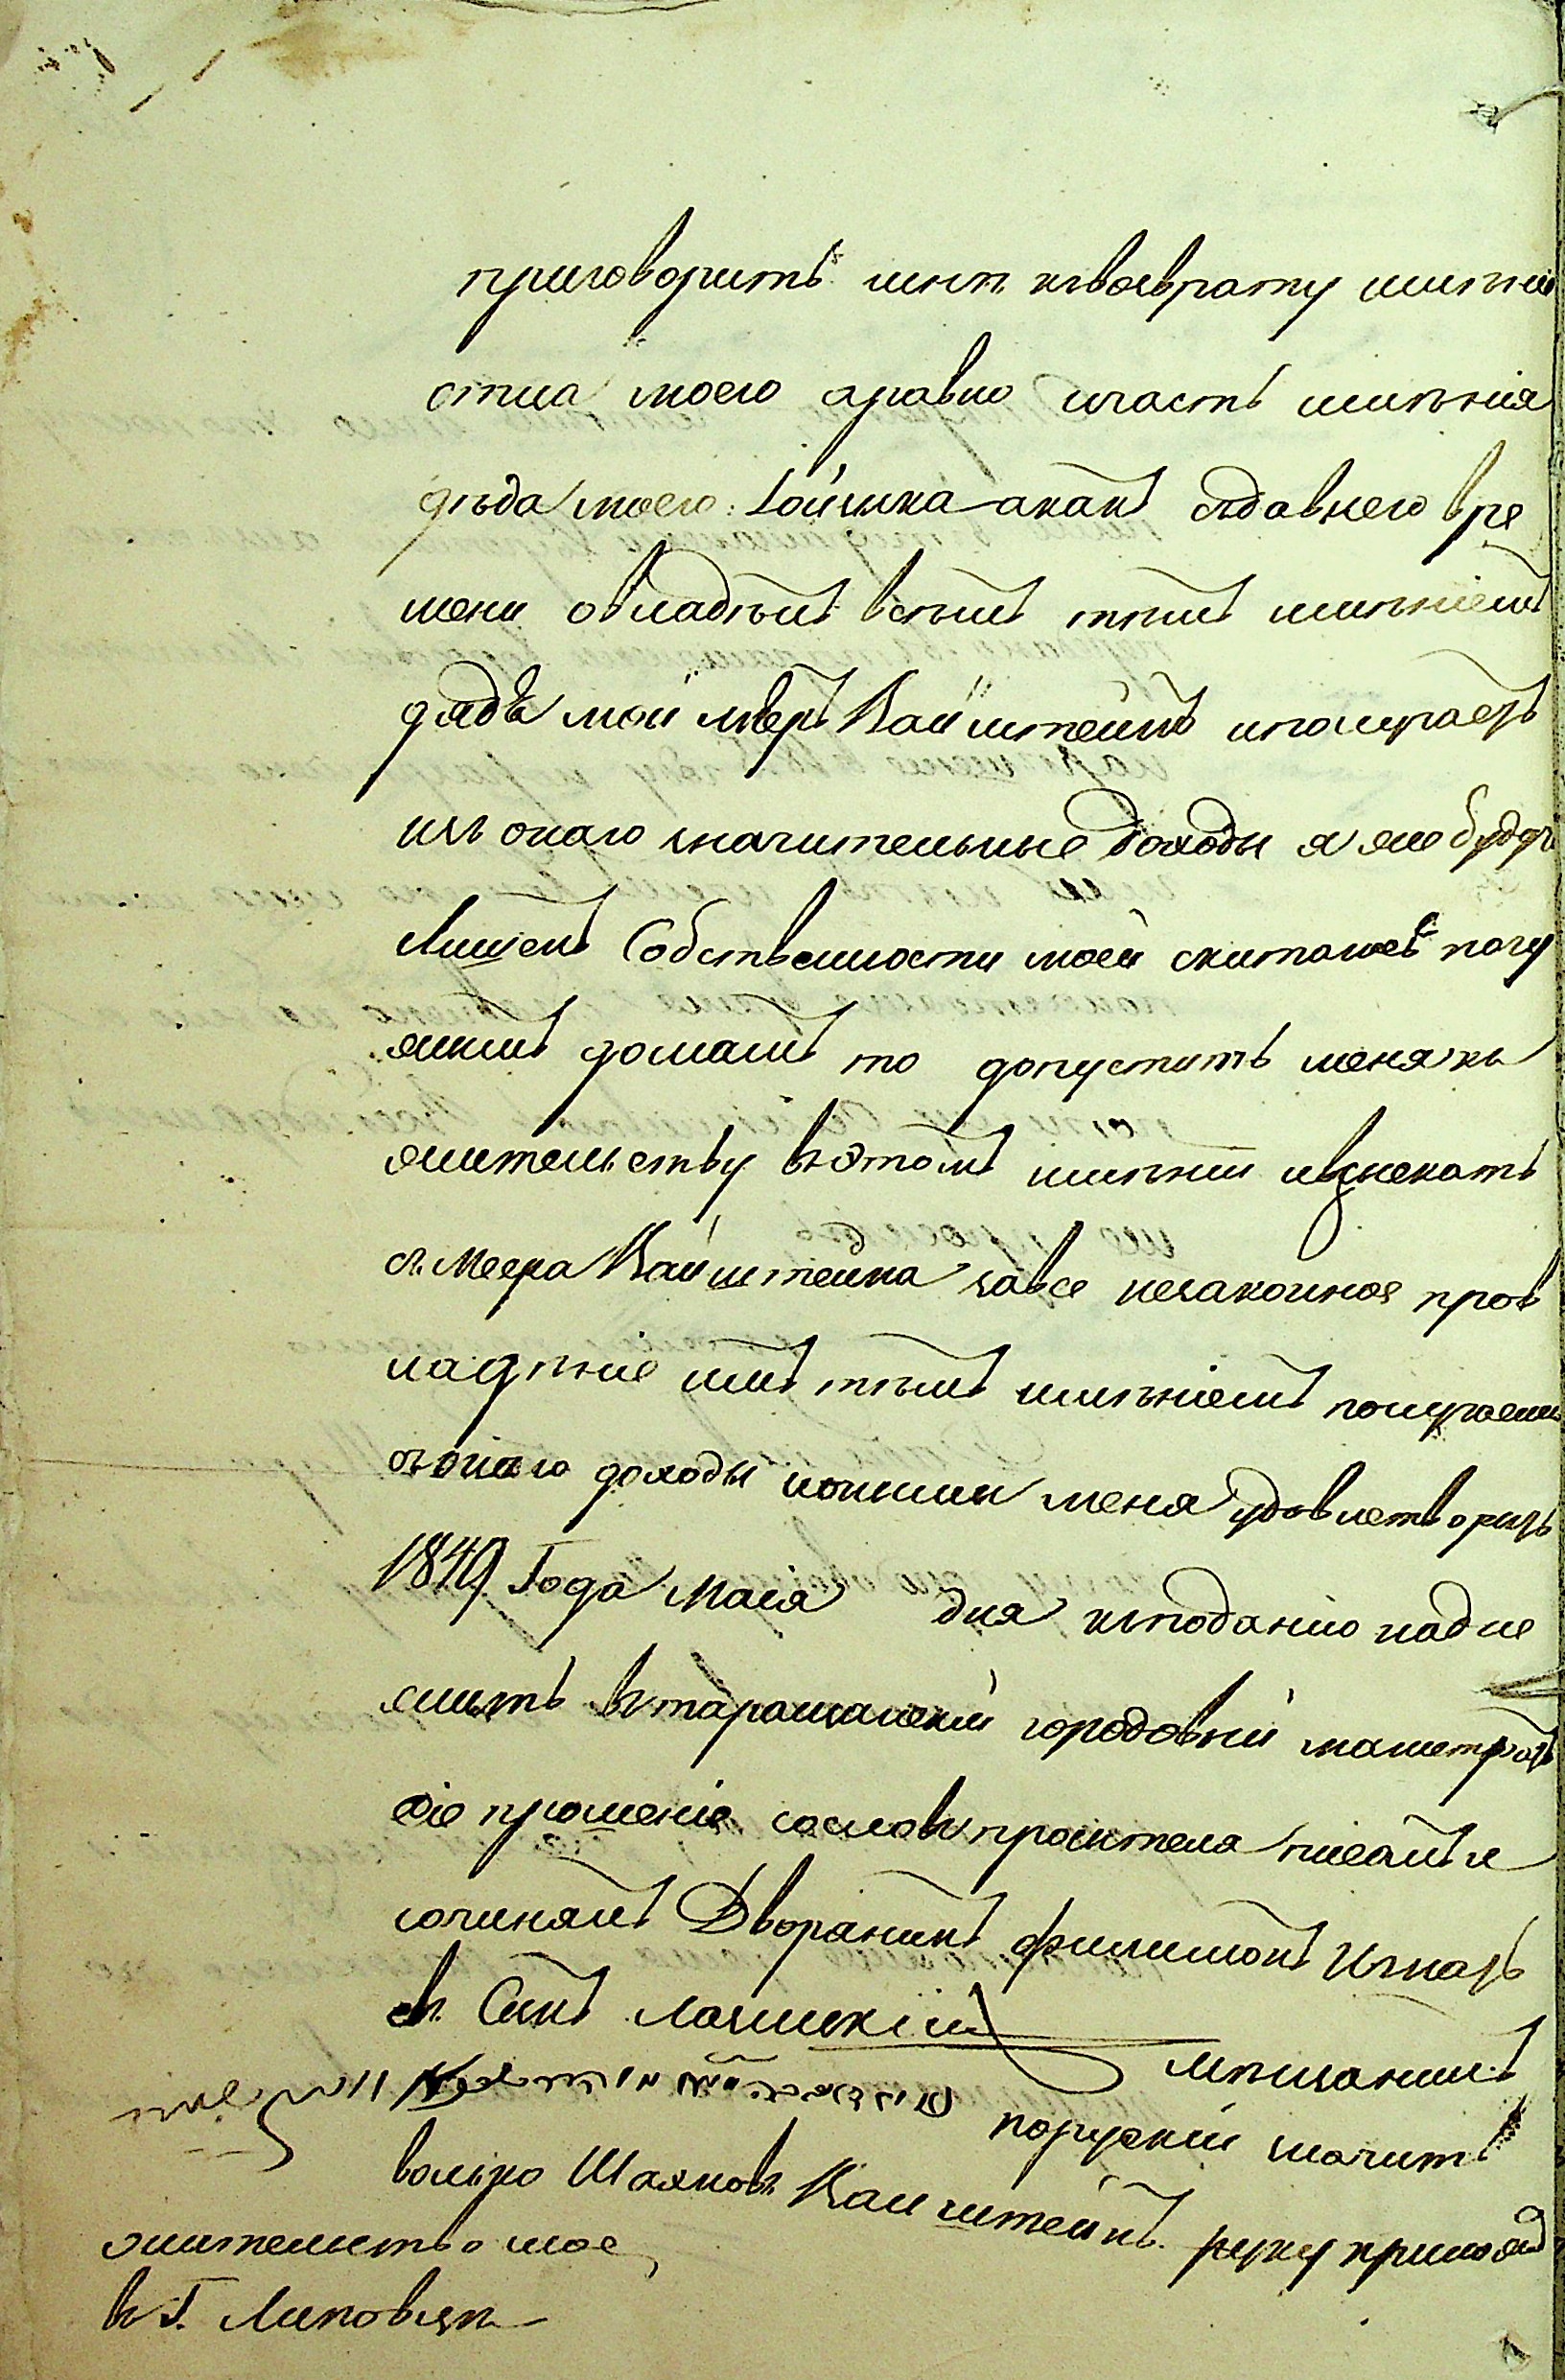 приговорить мнѣ квозврату имѣнія
отца моего аравно ичасть имѣнія
дѣда моего Іойника акакъ сѣдавнего вре
мени овладѣлъ всѣмъ тѣмъ имѣніемъ
дядя мой мееръ Ванштейнъ иполучаетъ
изъ онаго значительные доходы я же будучи
Лишенъ Собственности моей скитаюсь почу
жимъ домамъ то допустить меня къ
жительству вэтомъ имѣнии ивзыскать
съ Меера Ванштейна завсе незаконное пров
ладѣние имъ тѣмъ имѣніемъ получаемые
зъонаго доходы иоными меня удовлетворить
1849 Года Маія дня кѣподанію надле
житъ вътаращанский городовий магистратъ
сіе прошеніе сословъ просителя писалъ и
сочинялъ Дворанинъ филимонъ Игнать
евъ Сынъ
мѣщанинъ
порускии значитъ
волько Шаяновъ Ванштейнъ руку приложилъ
жительство мое
въ Г. Липовцѣ